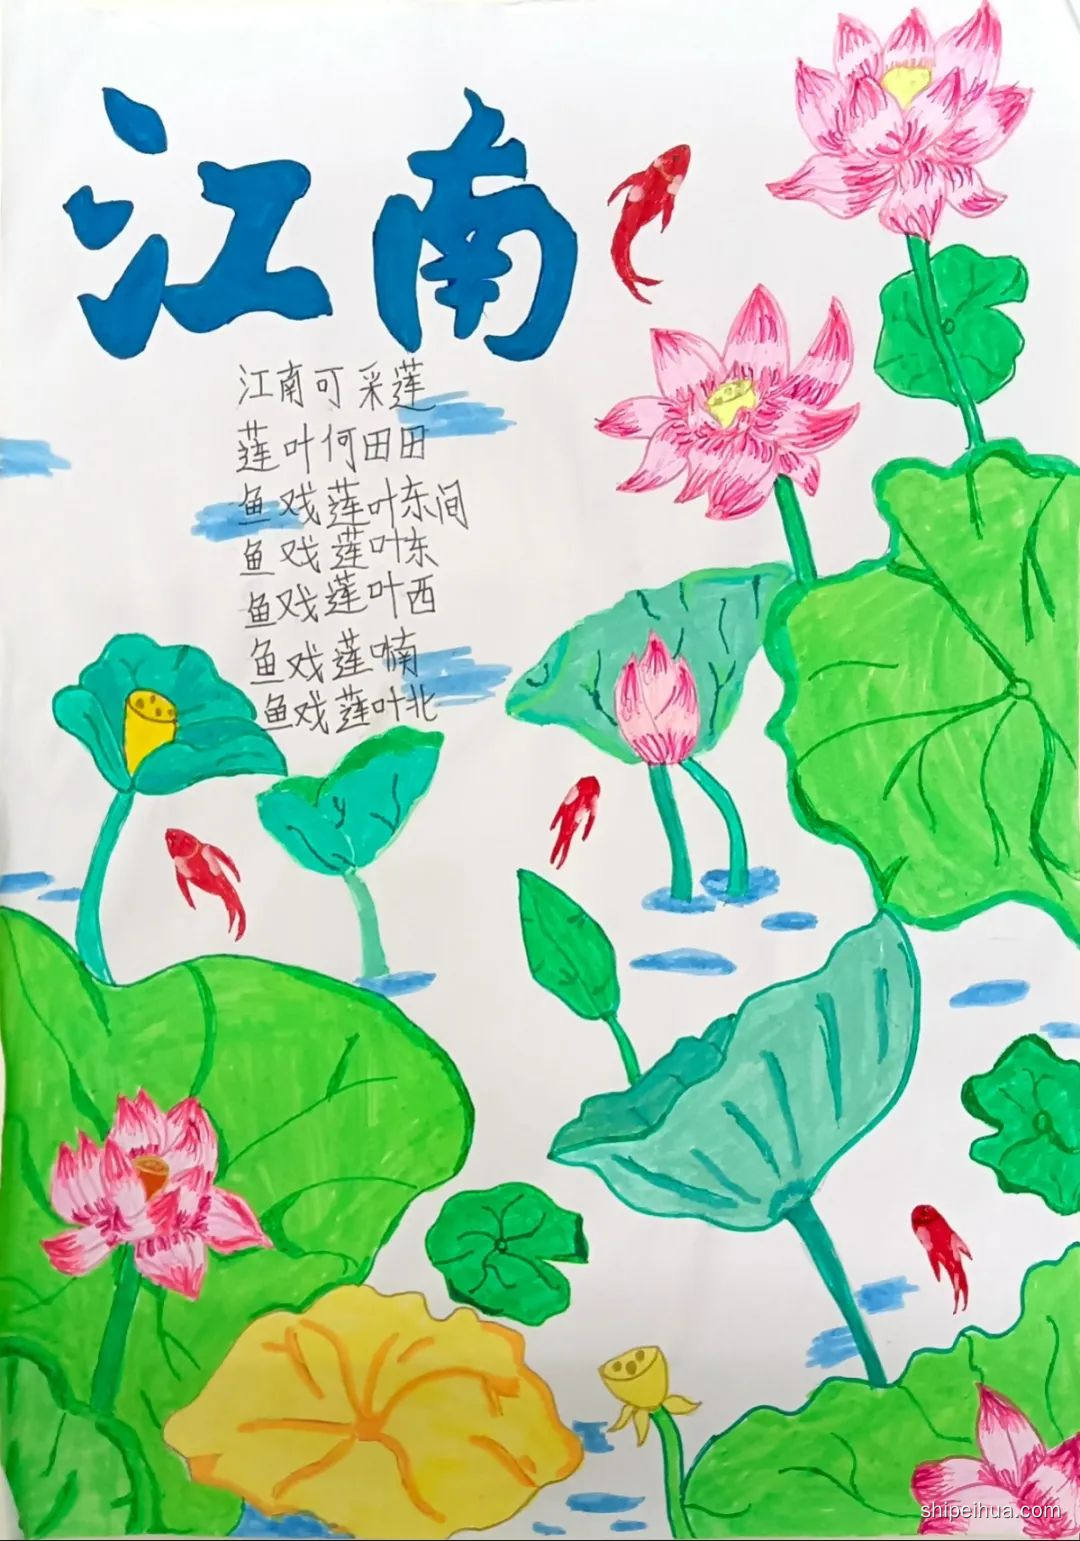 江南
江南可采莲
莲叶何田田
鱼戏莲叶东间
鱼戏莲叶东
鱼戏莲叶西
鱼戏莲喃
鱼戏莲叶北
shipeihua.com